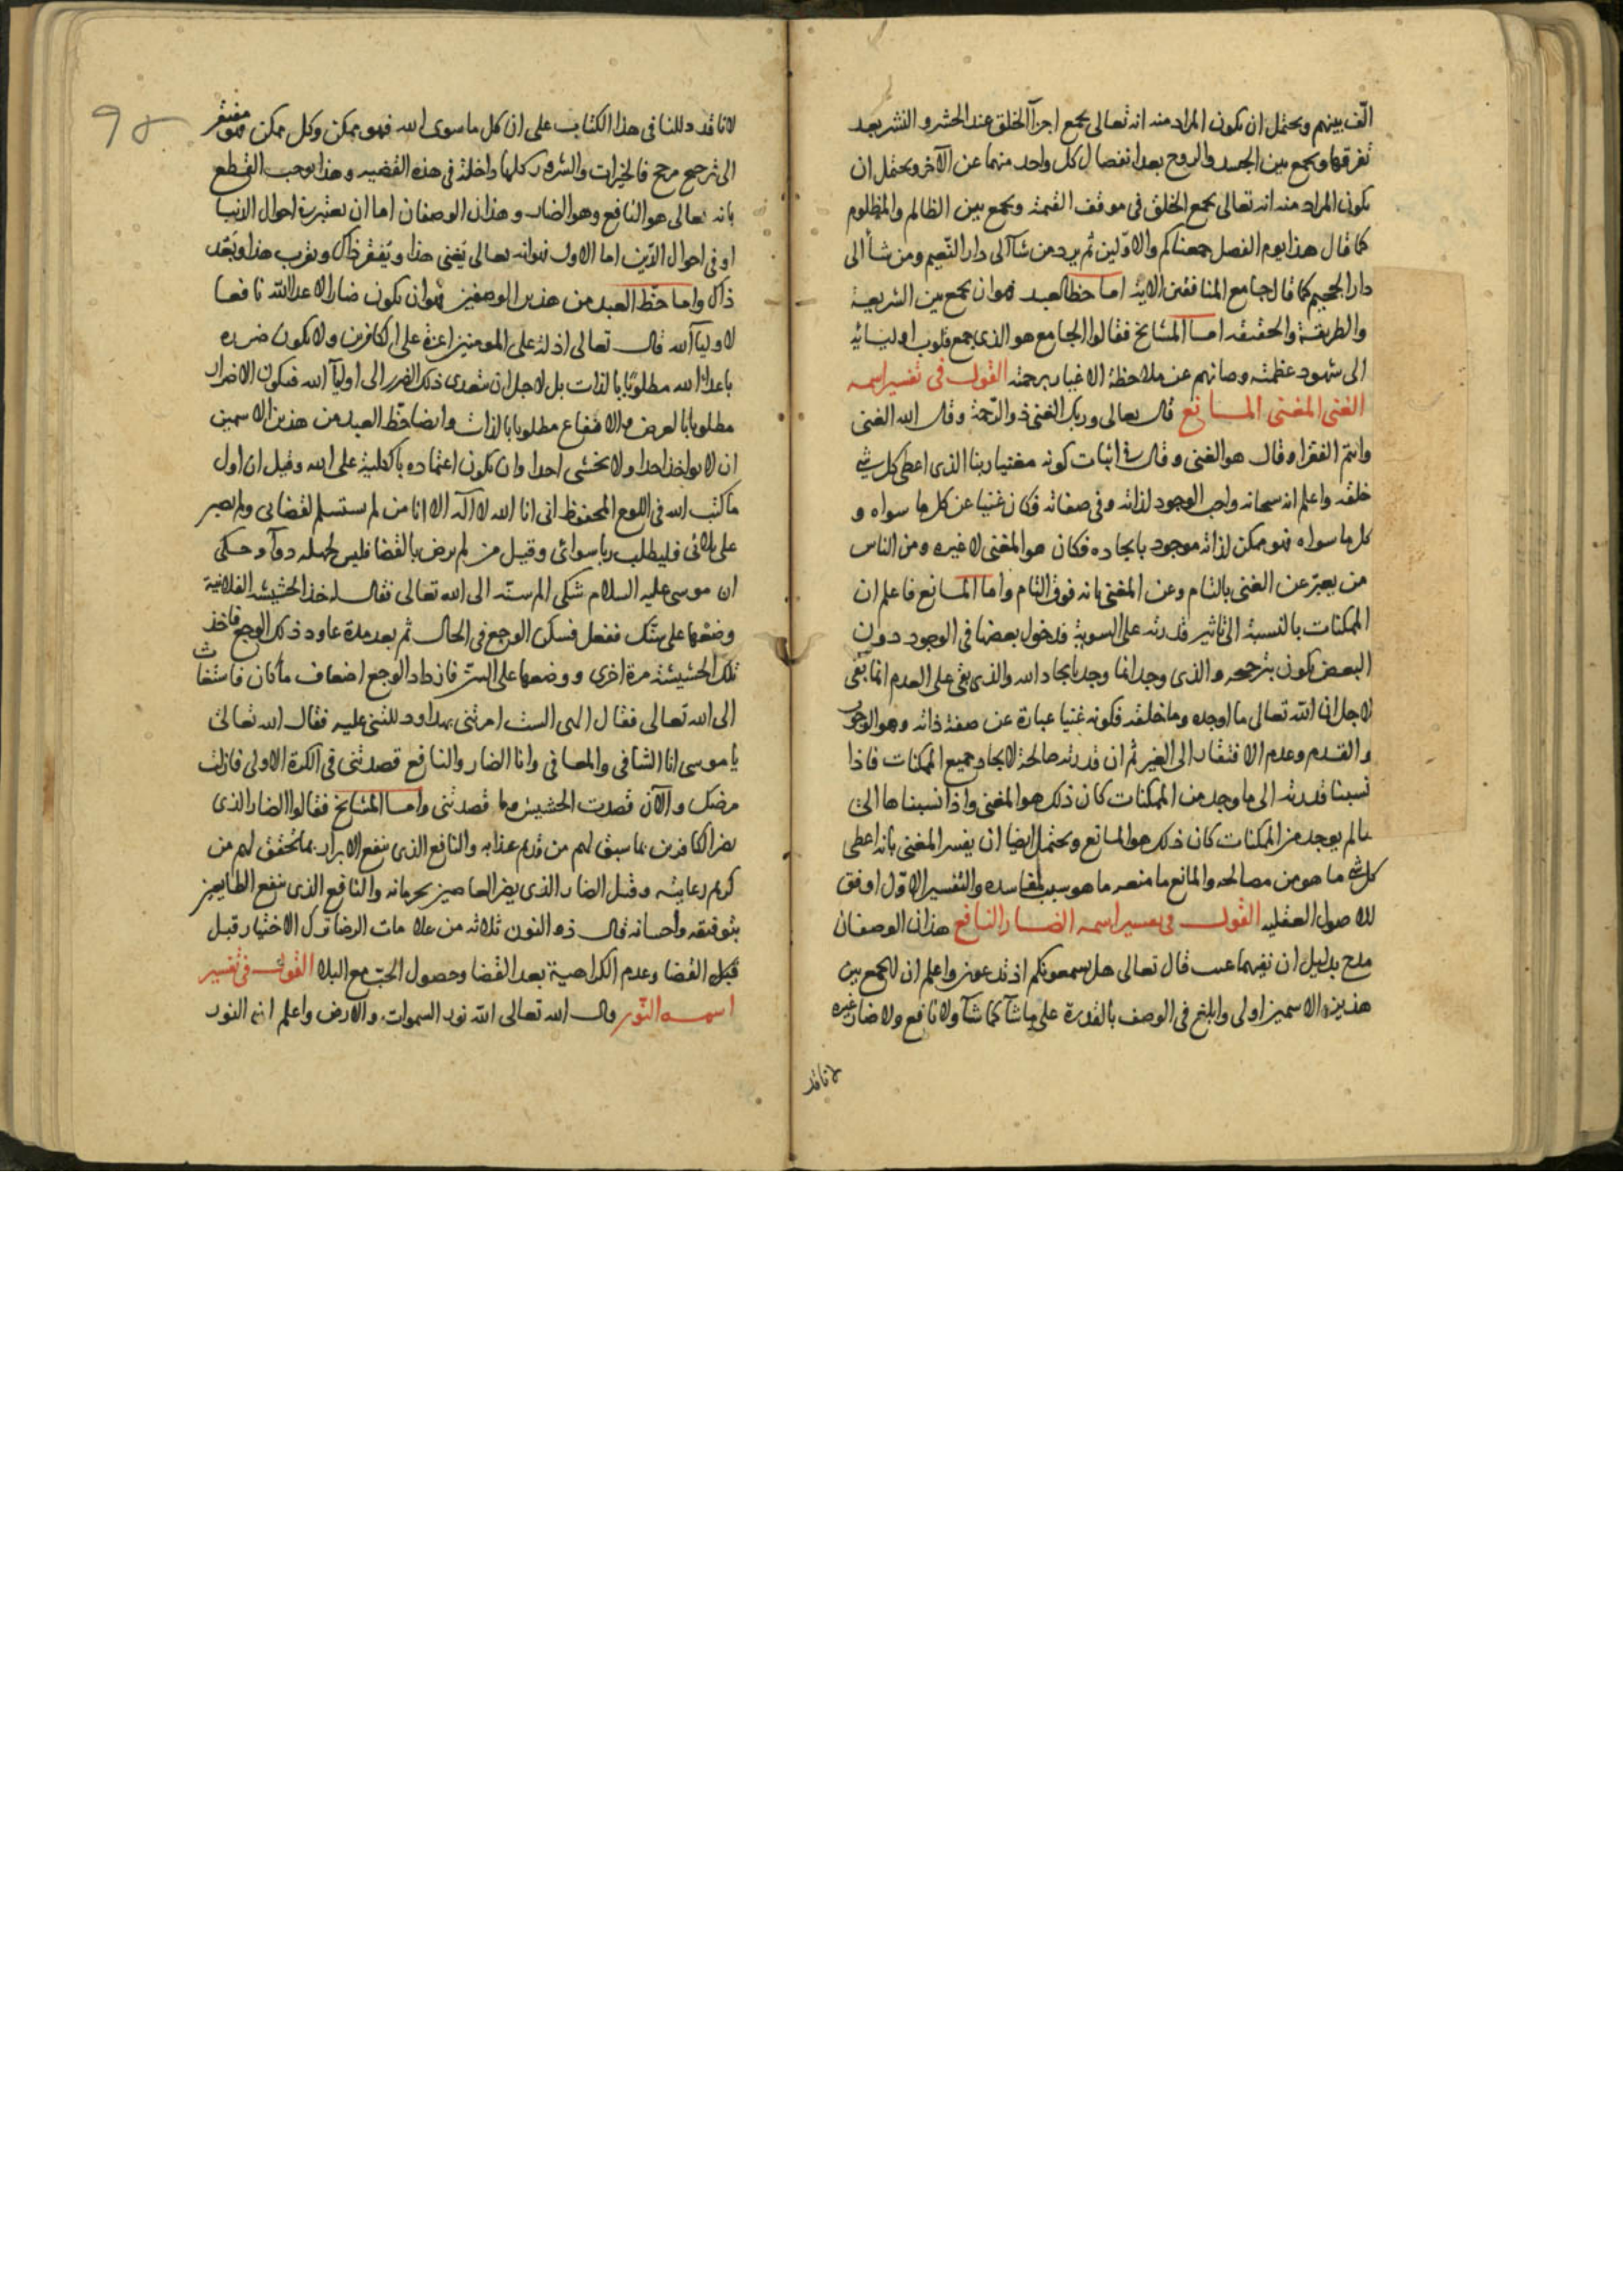 الّف بينهم ويحتمل ان يكون المراد منه انه تعالى يجمع اجزآ الخلق عند الحشر والنشر بعد
تفرقها ويجمع بين الجسد والروح بعد انفصال كل واحد منهما عن الآخر ويحتمل ان
يكون المراد منه انه تعالى يجمع الخلق فى موقف القيمة ويجمع بين الظالم والمظلوم
كما قال هذا يوم الفصل جمعناكم والاوّلين ثم يرد من شآ الى دار النّعيم ومن شأ الى
دار الجحيم كما قال جامع المنافقين الاية اما حظ العبد فهو ان يجمع بين الشريعة
والطريقة والحقيقه اما المشايخ فقالوا الجامع هو الذى جمع قلوب اوليائه
الى شهود عظمته وصانهم عن ملاحظة الاغيار برحمته القول فى تفسير اسمه
الغنى المغنى المانع قال تعالى وربك الغنى ذو الرّحمة وقال الله الغنى
وانتم الفقرا وقال هو الغنى وقال فى اثبات كونه مغنيا ربنا الذى اعطى كل شى
خلقه واعلم انه سبحانه واجب الوجود لذاته وفى صفاته فكان غنيا عن كل ما سواه و
كل ما سواه فهو ممكن لذاته موجود بايجاده فكان هو المغنى لا غيره ومن الناس
من يعبّر عن الغنى بالتام وعن المغنى بانه فوق التام واما المانع فاعلم ان
الممكنات بالنسبة الى تاثير قدرته على السوية فدخول بعضها فى الوجود دون
البعض يكون بترجيحه والذى وجد انما وجد بايجاد الله والذى بقى على العدم انما بقى
لاجل ان الله تعالى ما اوجده وما خلقه فكونه غنيا عبارة عن صفة ذاته وهو الوجوب
والقدم وعدم الافتقار الى الغير ثم ان قدرته صالحة لايجاد جميع الممكنات فاذا
نسبنا قدرته الى ما وجد من الممكنات كان ذلك هو المغنى واذا نسبناها الى
مالم يوجد من الممكنات كان ذلك هو المانع ويحتمل ايضا ان يفسر المغنى بانه اعطى
كل شى ما هو من مصالحه والمانع ما منعه ما هو سبب لمفاسده والتفسير الاوّل اوفق
للاصول العقليه القول فى تفسير اسمه الضار النافع هذان الوصفان
مدح بدليل ان نفيهما عيب قال تعالى هل يسمعونكم اذ تدعون واعلم ان الجمع بين
هذين الاسمين اولى وابلغ فى الوصف بالقدرة على ما شآ كما شآ ولا نافع ولا ضار غيره
لانا قد
لانا قد دللنا فى هذا الكتاب على ان كل ما سوى الله فهو ممكن وكل ممكن فهو مفتقر
الى ترجيح مرجح فالخيرات والشرور كلها داخلة فى هذه القضيه وهذا يوجب القطع
بانه تعالى هو النافع وهو الضار وهذان الوصفان اما ان يعتبر فى احوال الدنيا
او فى احوال الدّين اما الاول فهو انه تعالى يغنى هذا ويفقر ذاك ويقرب هذا ويبعّد
ذاك واما حظّ العبد من هذين الوصفين فهو ان يكون ضارا لاعدآ الله نافعا
لاوليآ الله قال تعالى اذلة على المومنين اعزة على الكافرين ولا يكون ضرره
باعدآ الله مطلوبا بالذات بل لاجل ان يتعدى ذلك الضرر الى اوليآ الله فيكون الاضرار
مطلوبا بالعرض والانتفاع مطلوبا بالذات وايضا حظّ العبد من هذين الاسمين
ان لا يواخذ احدا ولا يخشى احدا وان يكون اعتماده بالكلية على الله وقيل ان اول
ما كتب الله فى اللوح المحفوظ انى انا الله لا اله الا انا من لم يستسلم لقضائى ولم يصبر
على بلائى فليطلب ربا سوائى وقيل من لم يرض بالقضا فليس لجهله دوآ وحكى
ان موسى عليه السلام شكى الم سنّه الى الله تعالى فقال له خذ الحشيشه الفلانية
وضعها على سنّك ففعل فسكن الوجع فى الحال ثم بعد مدة عاود ذلك الوجع فاخذ
تلك الحشيشة مرة اخرى ووضعها على السنّ فازداد الوجع اضعاف ما كان فاستغاث
الى الله تعالى فقال الهى الست امرتنى بهذا ودللتنى عليه فقال الله تعالى
يا موسى انا الشافى والمعافى وانا الضار والنافع قصدتنى فى الكرة الاولى فازلت
مرضك والآن قصدت الحشيش وما قصدتنى واما المشايخ فقالوا الضار الذى
يضر الكافرين بما سبق لهم من قديم عذابه والنافع الذى ينفع الابرار بما تحقق لهم من
كريم رعايته وقيل الضار الذى يضر العاصين بحرمانه والنافع الذى ينفع الطايعين
بتوفيقه واحسانه قال ذو النون ثلاثه من علامات الرضا ترك الاختيار قبل
قبل القضا وعدم الكراهية بعد القضا وحصول الحبّ مع البلا القول فى تفسير
اسمه النّور قال الله تعالى الله نور السموات والارض واعلم ان النور